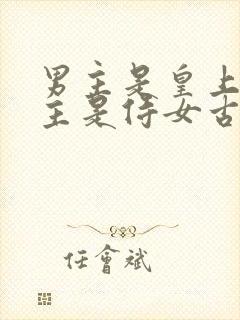 男主是皇上
主是侍女古
任會斌